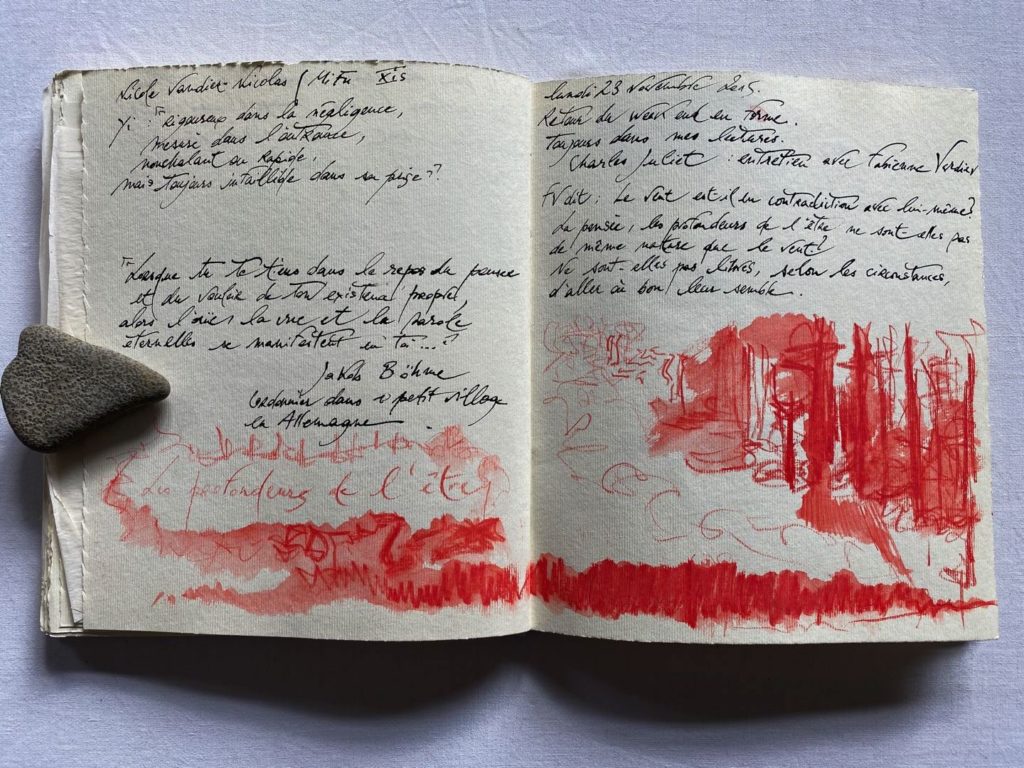 Nicole Vandier-Nicolas / Mi Fu XIs
Yi : "Rigoureux dans la négligence,
mesuré dans l'outrance,
nonchalant ou rapide,
mais toujours infaillible dans sa prise".
"Lorsque tu te tiens dans le repos du penser
et du vouloir de ton existence propre,
alors l'ouïe, la vue et la parole
éternelles se manifestent en toi..."
Jakob Böhme
Cordonnier dans 1 petit village
en Allemagne.
Les profondeurs de l'être
lundi 23 novembre 2015.
Retour du week end en forme.
Toujours dans mes lectures.
Charles Juliet : entretien avec Fabienne Verdier
FV dit : Le vent est-il en contradiction avec lui-même?
La pensée, les profondeurs de l'être ne sont-elles pas
de même nature que le vent?
Ne sont-elles pas libres, selon les circonstances,
d'aller où bon leur semble.